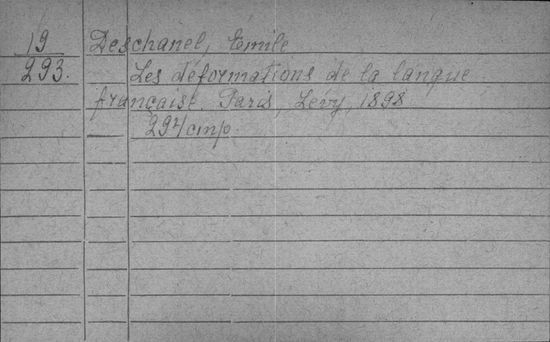 19 Deschanel, Emile
293. Les déformations de la langue
française. Paris, Lévy, 1898
294 стр.